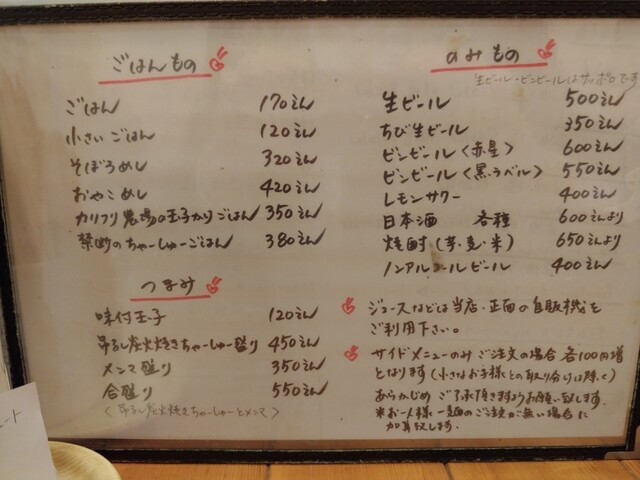 ごはんもの
ごはん 170えん
小さいごはん 120えん
そぼろめし 320えん
おやこめし 420えん
カリフリ農場の玉子かけごはん 350えん
禁断のちゃーしゅーごはん 380えん
つまみ
味付玉子 120えん
吊るし炭火焼きちゃーしゅー盛り 450えん
メンマ盛り 350えん
合盛り 550えん
〈吊るし炭火焼きちゃーしゅーとメンマ〉
のみもの
生ビール・ビンビールはサッポロです
生ビール 500えん
ちび生ビール 350えん
ビンビール〈赤星〉 600えん
ビンビール〈黒ラベル〉 550えん
レモンサワー 400えん
日本酒 各種 600えんより
焼酎(芋・麦・米) 650えんより
ノンアルコールビール 400えん
ジュースなどは当店・正面の自販機を
ご利用下さい。
サイドメニューのみご注文の場合 各100円増
となります(小さなお子様との取り分けは除く)
あらかじめご了承頂きますようお願い致します.
※お一人様一麺のご注文が無い場合に
加算致します.
ート